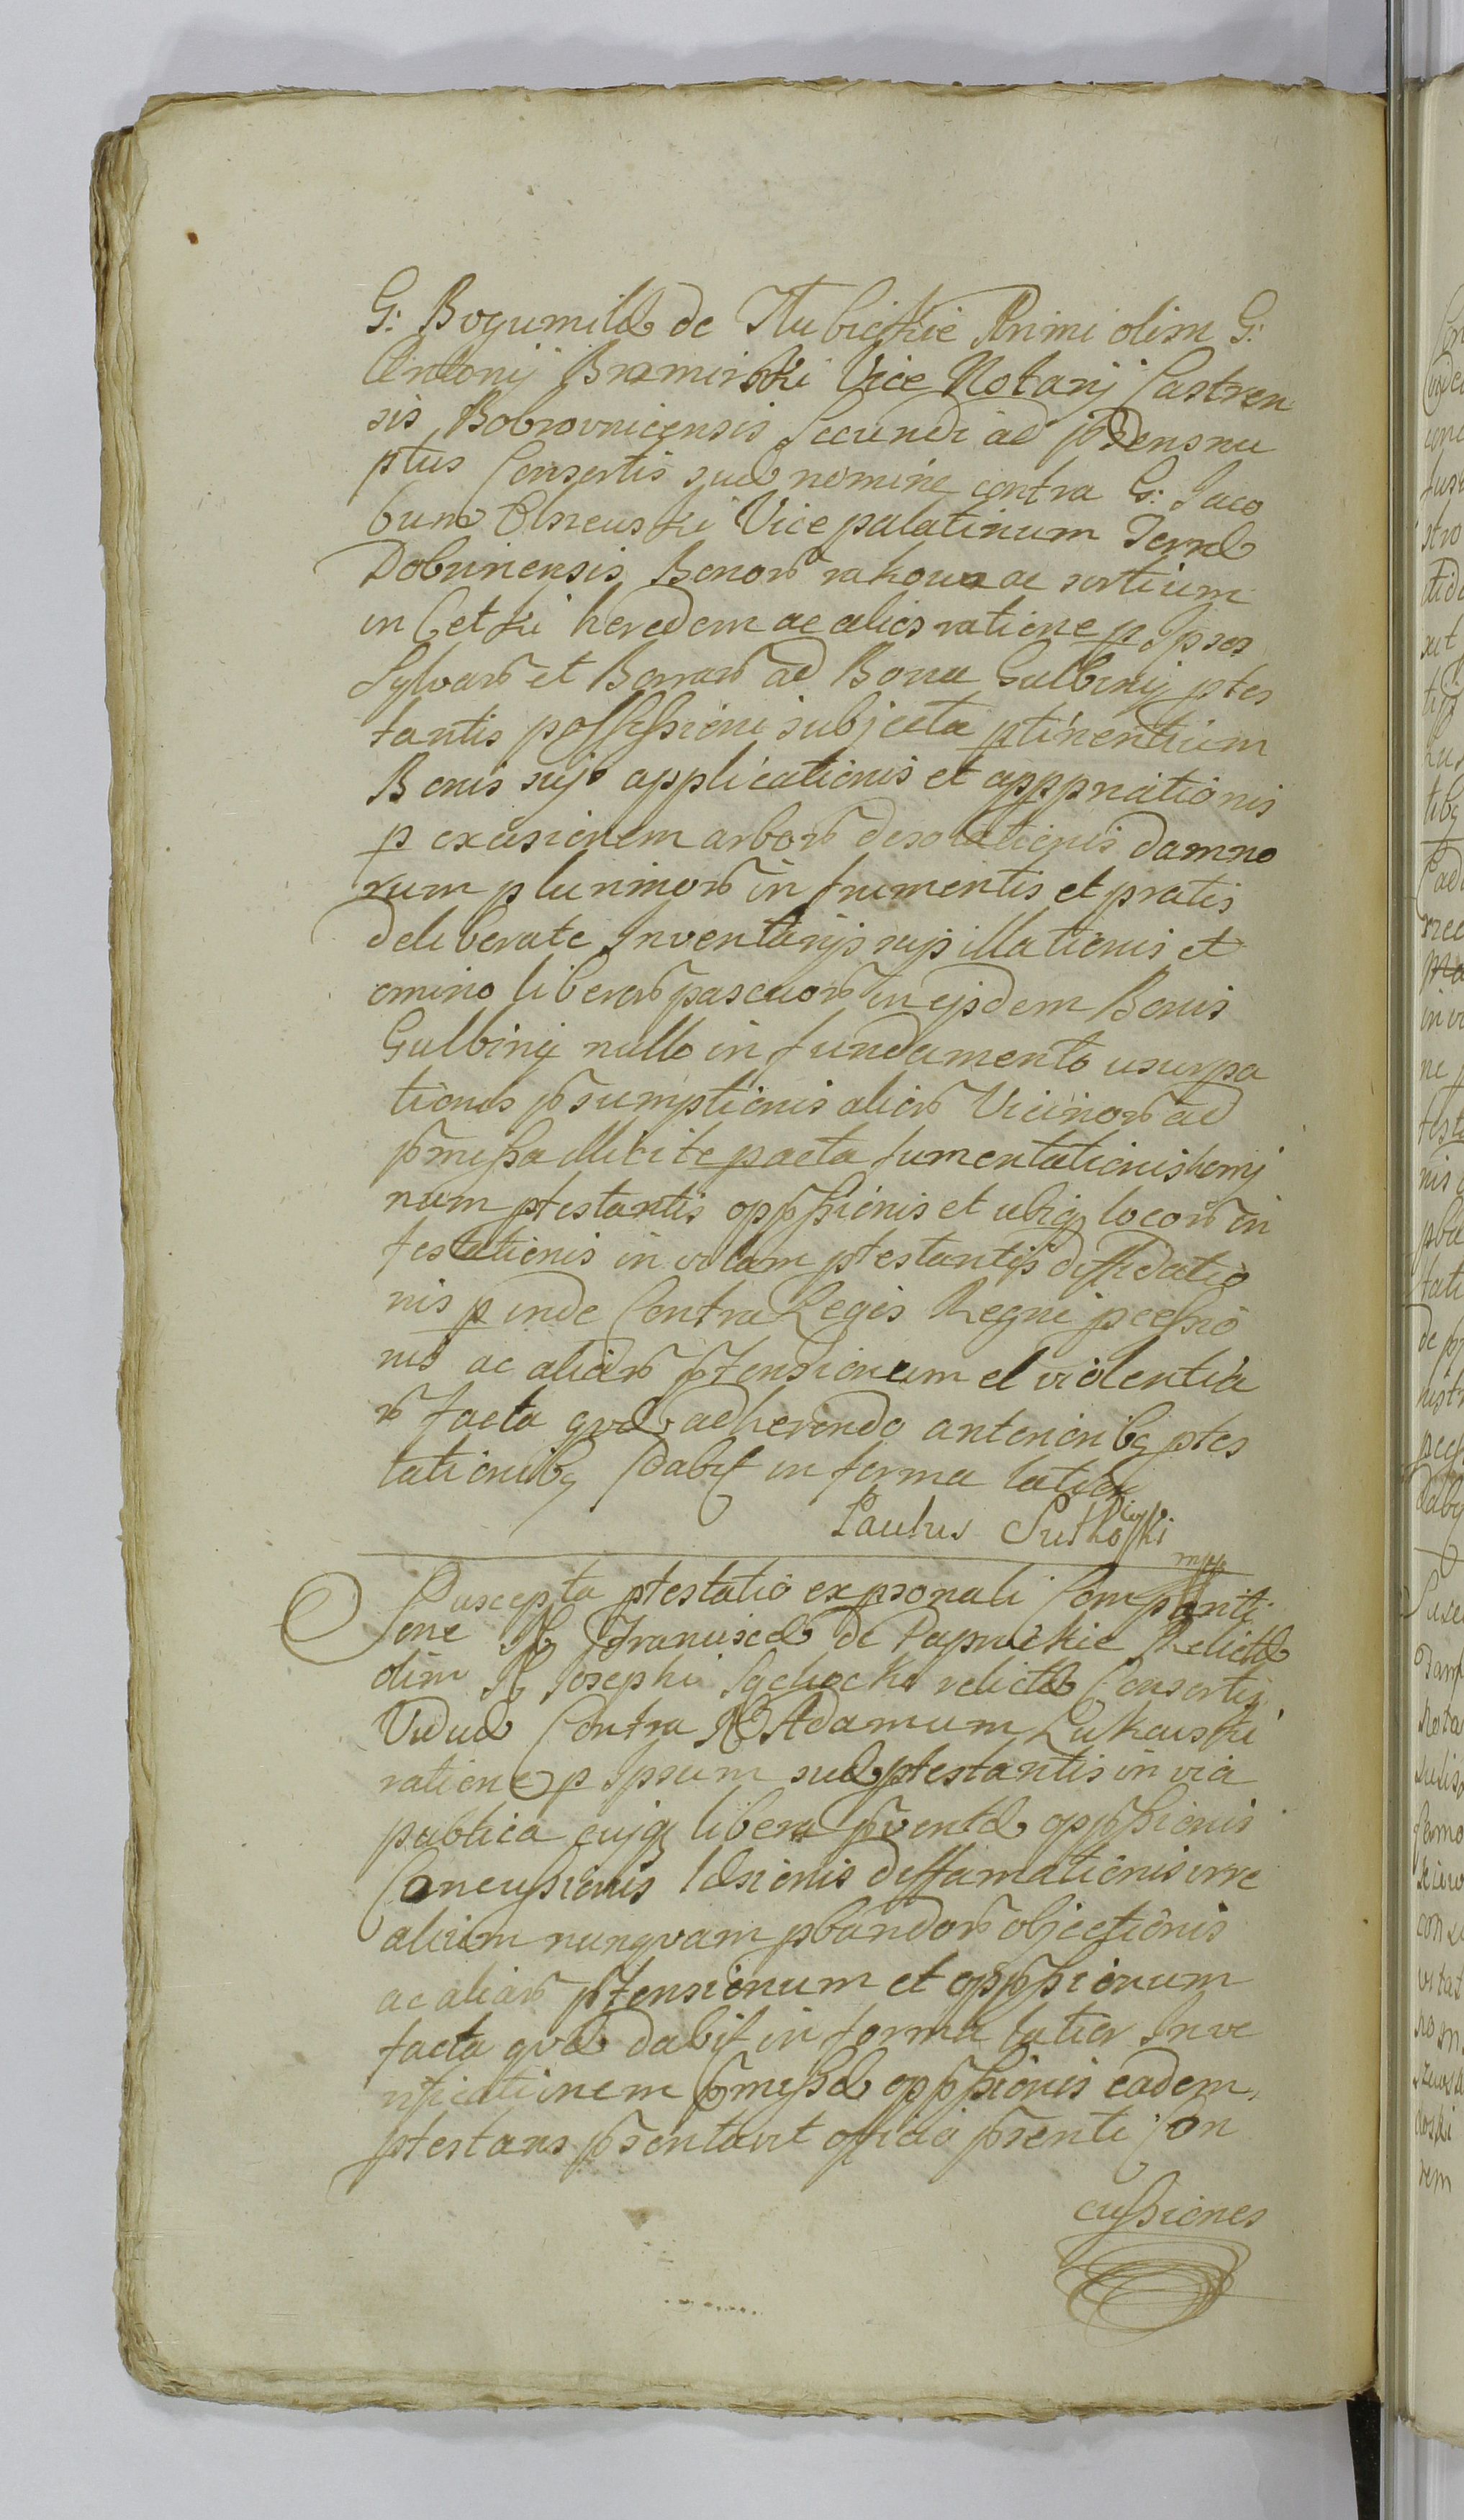 G: Bogumilæ de Kłubickie Primi olim G:
Antonij Bramirski Vice Notarij Castren
sis Bobrovnicensis Secundi ad pndens nu
ptus Consortis suæ nomine contra G: Jaco
bum Olszewski Vice palatinum Terræ
Dobrinensis Bonor rakowa ac sortium
in Cetki heredem ac alios ratione p ipsos
Sylvar et Borrar ad Bona Gulbiny ptes
tantis possessioni subjecta ptinentium
Bonis sujs applicationis et apppriationis
p excisionem arbor desolationis damno
rum plurimor in frumentis et pratis
deliberate Inventarijs sujs illationis et
omino liberor pascuor in ejsdem Bonis
Gulbiny nullo in fundamento usurpa
tionis psumptionis alior Vicinor ad
pmissa illicite pacta fumentationis homi
num ptestantis oppssionis et ubiq locor in
festationis in vitam ptestantis diffidatio
nis p inde Contra Leges Regni pcessio
nis ac aliar ptensionum et violentia
r facta qvæ adherendo anteriorib ptes
tationib dabit in forma latiori
Paulus Sutkowski
mpp
Suscepta ptestatio ex psonali Compariti
one N Franciscæ de Paprockie Relictæ
olim N Josephi Sgchocki relictæ Consortis
Viduæ Contra N Adamum Lukawski
ratione p ipsum suæ ptestantis in via
publica cujq libera pventæ oppssionis
Concussionis læsionis diffamationis irre
alium nunqvam pbandor objectionis
ac aliar ptensionum et oppssionum
facta qvæ dabit in forma latior In ve
rificationem pmissæ oppssionis eadem
ptestans psentavit officio psenti Con
cussiones